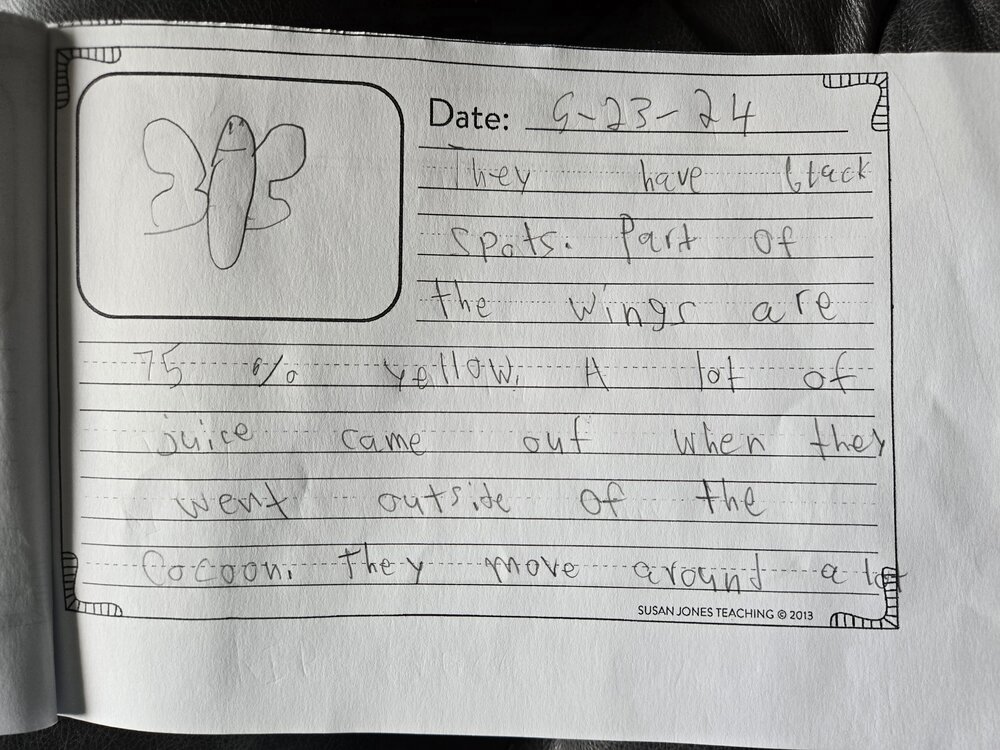 Date: 5-23-24
They have black
spots. Part of
the wings are
75 % yellow. A lot of
juice came out when they
went outside of the
Cocoon. they move around a lot
SUSAN JONES TEACHING © 2013